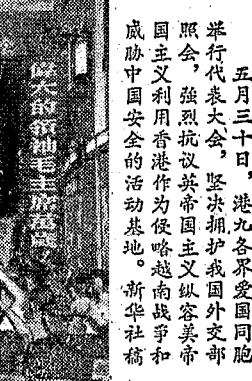 五月三十日，港九各界爱国同胞
举行代表大会，坚决拥护我国外交部
照会，强烈抗议英帝国主义纵容美帝
国主义利用香港作为侵略越南战争和
威胁中国安全的活动基地。新华社稿
伟大的领袖毛主席万岁